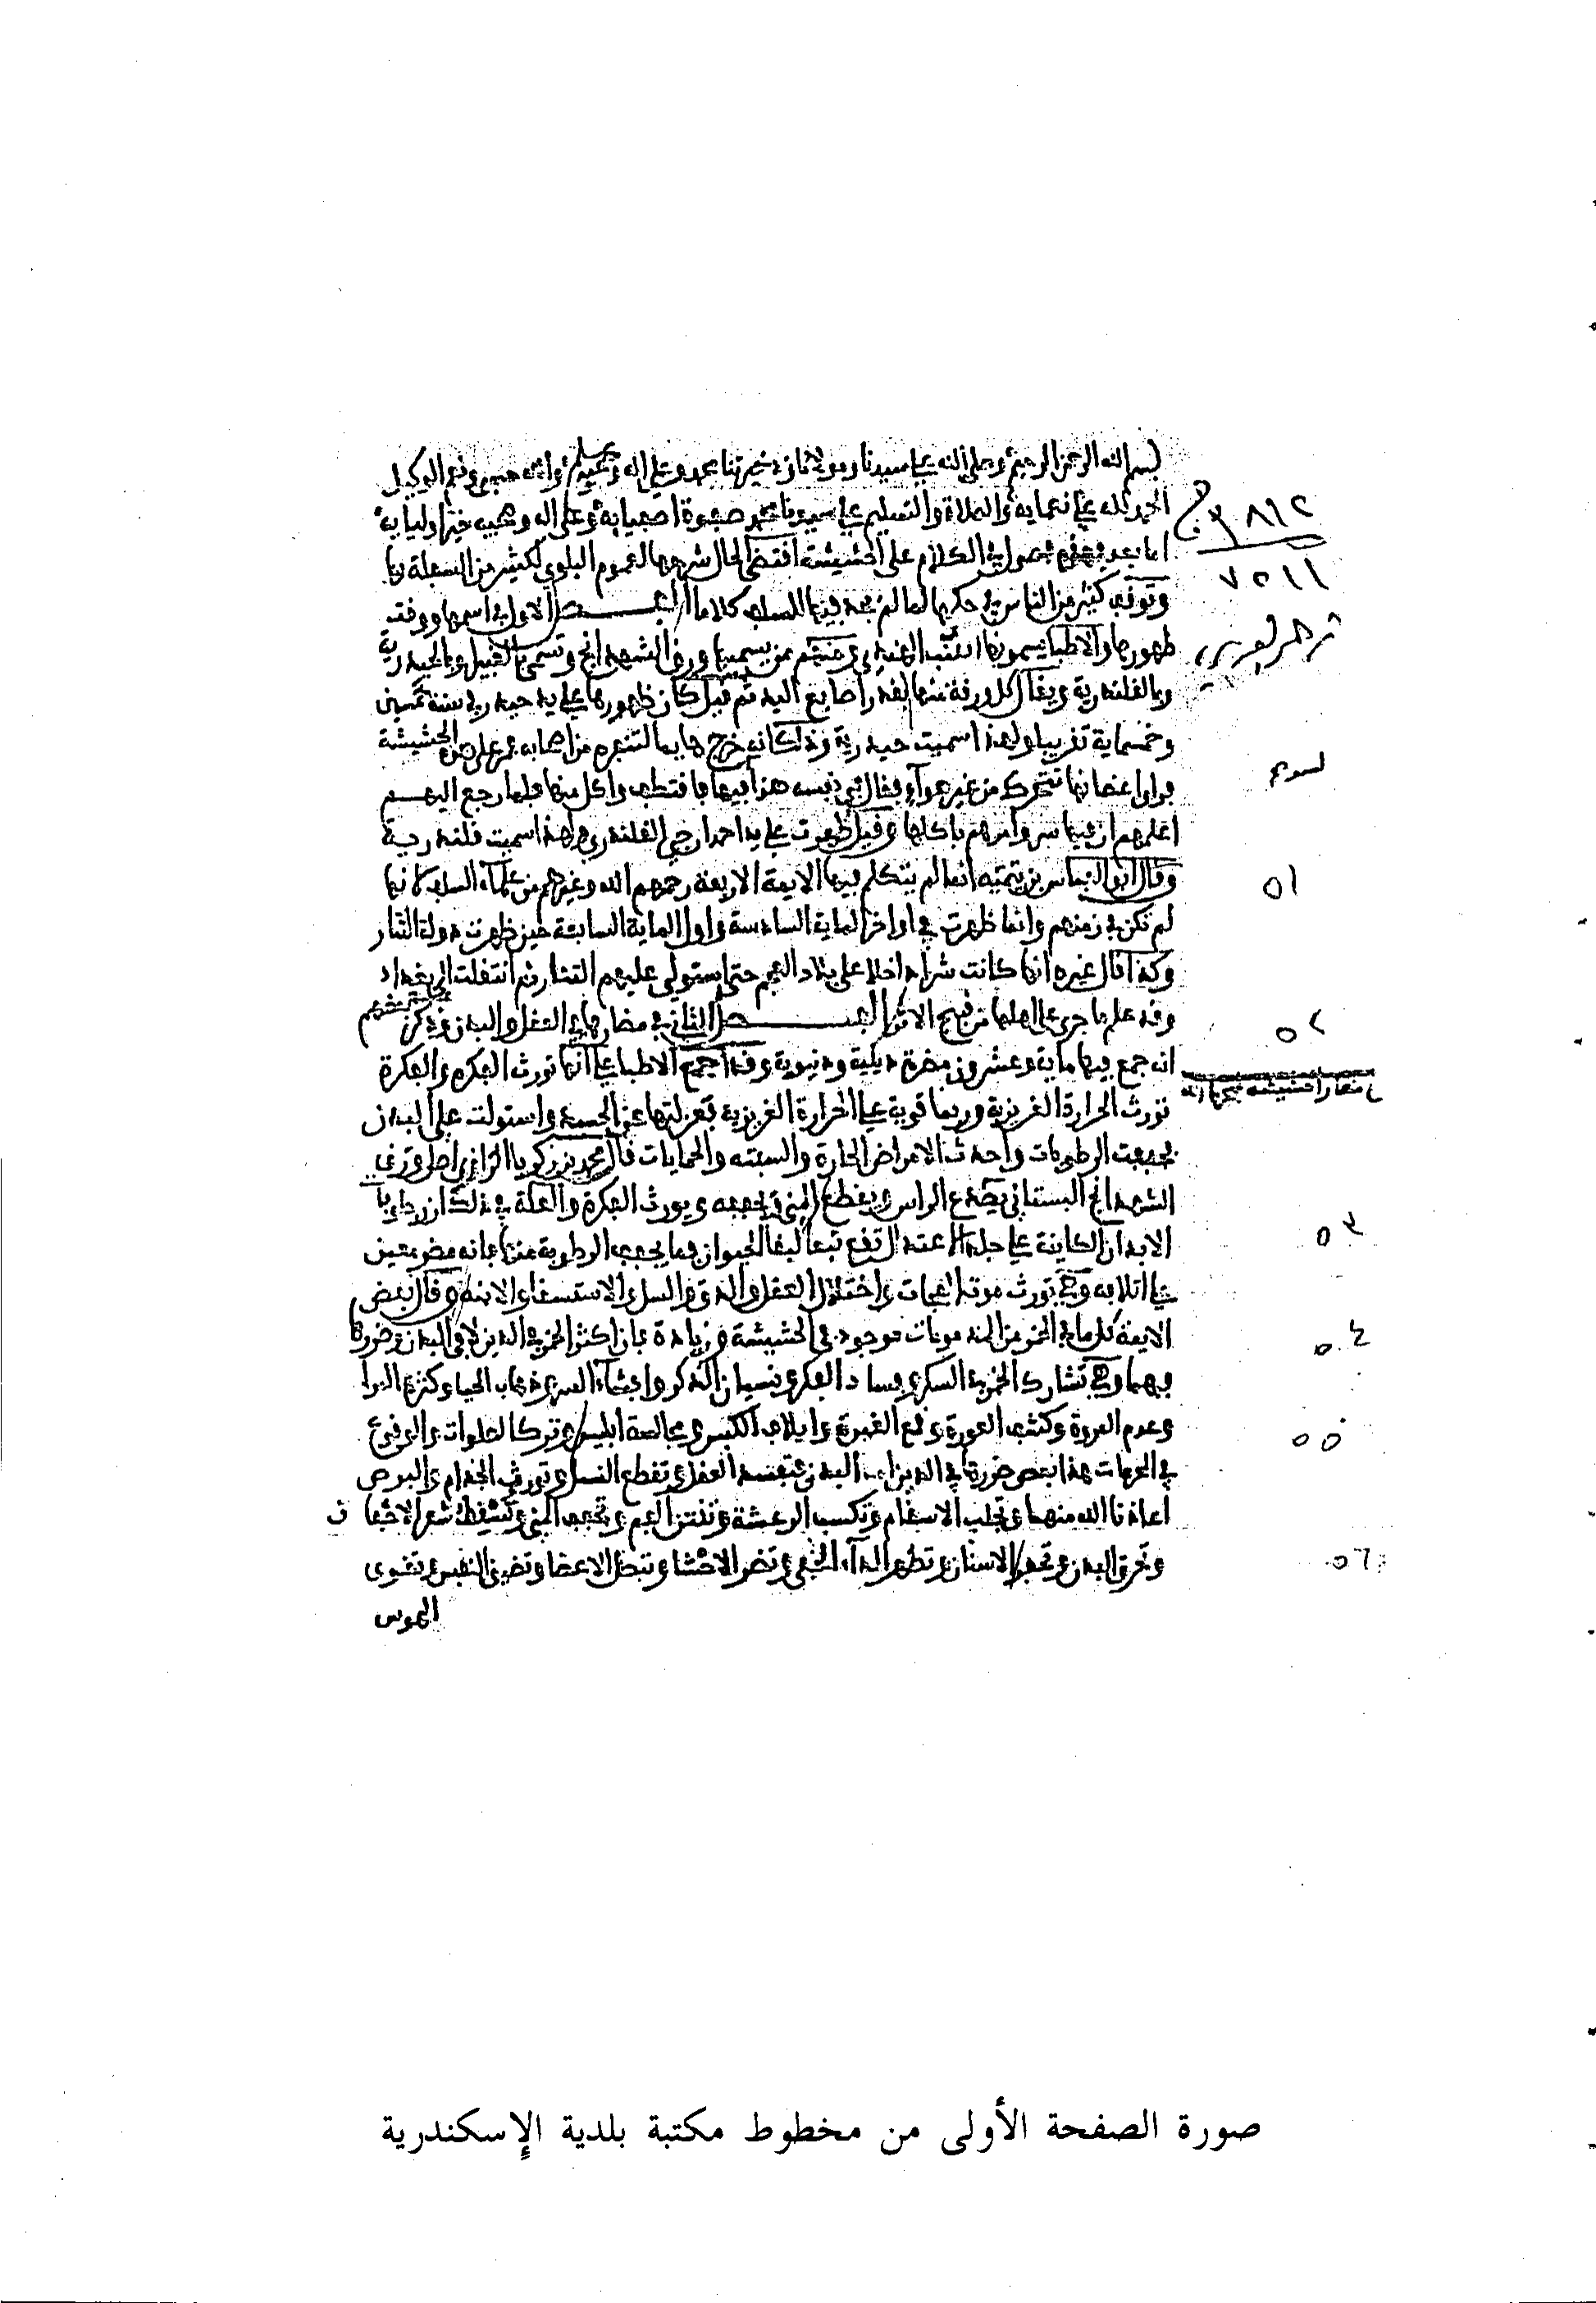 بسم الله الرحمن الرحيم وصلى الله على سيدنا ومولانا محمد وعلى اله وسلم والله حسبي ونعم الوكيل
الحمد لله على نعمايه والصلاة والتسليم على سيدنا محمد صفوة اصفيايه وعلى اله وصحبه خير اوليايه
اما بعد فهذه فصول في الكلام على الحشيشة اقتضى الحال شرحها لعموم البلوي لكثير من السفلة بها
وتوقف كثير من الناس في حكمها لما لم يجد فيها للسلف كلاما الفصل الاول في اسمها ووقت
ظهورها والاطبا يسمونها القنب الهندي ومنهم من يسميها ورق الشهدانج وتسمى بالغبيرا وبالحيدرية
وبالقلندرية ويقال كل ورقة منها بقدر اصابع اليد ثم قيل كان ظهورها على يد حيدر في سنة خمسين
وخمسماية تقريبا ولهذا سميت حيدرية وذلك انه خرج هايما لتنفره من اصحابه فمر على هذه الحشيشة
فراى اغصانها تتحرك من غير هوآء فقال في نفسه هذا فيها فاقتطف واكل منها فلما رجع اليهم
اعلمهم ان فيها سر وامرهم باكلها وقيل ظهرت على يد احمد القلندري ولهذا سميت قلندرية
وقال ابو العباس بن تيمية انما لم يتكلم فيها الايمة الاربعة رحمهم الله وغيرهم من علمآء السلف لانها
لم تكن في زمنهم وانما ظهرت في اواخر الماية السادسة واول الماية السابعة حين ظهرت دولة التتار
وكذا قال غيره انها كانت شرا داخلا على بلاد العجم حتى استولى عليهم التتار ثم انتقلت الى بغداد
وقد علم ما جرى على اهلها من قبيح الاثر الفصل الثاني في مضارها في العقل والبدن وذكر بعضهم
انه جمع فيها ماية وعشرون مضرة دينية ودنيوية وقد اجمع الاطبا على انها تورث الفكره والفكرة
تورث الحرارة الغريزية وربما قوية على الحرارة الغريزية فعزلتها عن الجسد واستولت على البدن
فجففت الرطوبات واحدث الامراض الحارة والحمايات قال محمد بن زكريا الرازي اكل ورق
الشهدانج البستاني يصدع الراس ويقطع المني ويجففه ويورث الفكرة والعلة في ذلك ان
الابدان الكاينة على جلة الاعتدال تبقى تبعا لبقا الحيوان فما يجفف الرطوبة منها فانه مضر معين
على اتلافه وهي تورث موت الفجات واختلال العقل والدق والسل والاستسقا والابنه وقال بعض
الايمة كل ما في الخمر من المذمومات موجود في الحشيشة وزيادة فان اكثر الخمر في الدين لا في البدن وضررها
فيهما وهي تشارك الخمر في السكر وفساد الفكر ونسيان الذكر وافشآء السر وذهاب الحيا وكثرة المرا
وعدم المروة وكشف العورة وقمع الغيرة واتلاف الكيس ومجالسة ابليس وترك الصلوات والوقوع
في المحرمات هذا بعض ضررها في الدين اما البدن فتفسد العقل وتقطع النسل وتورث الجذام والبرص
اعاذنا الله منهما وتجلب الاسقام وتكسب الرعشة وتنتن الفم وتجفف المني وتسقط شعر الاجفان
وتحرق البدن وتحفر الاسنان وتظهر الدآء الخفي وتضر الاحشا وتبطل الاعضا وتضيق النفس وتقوى
الهوس
٣٨٦٢ ج
٧٥١١
٥١
٥٢
٥٣
٥٤
٥٥
٥٦
صورة الصفحة الأولى من مخطوط مكتبة بلدية الإسكندرية